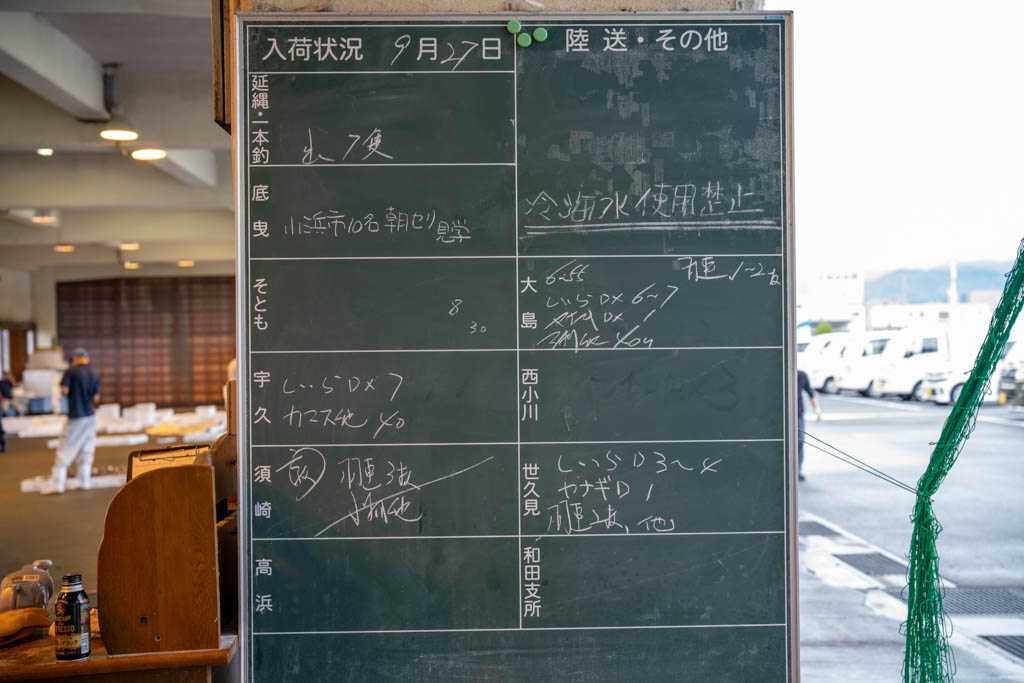 入荷状況 9月27日
陸送・その他
延縄・一本釣
出 7隻
冷海水使用禁止
底曳
小浜市10名 朝セリ見学
そとも
8
30
大島
6~55
1~2
しいらDX 6~7
DX 1
宇久
しいらDX 7
カマス他 40
西小川
須崎
3
世久見
しいらD 3~4
ヤナギD 1
他
高浜
和田支所